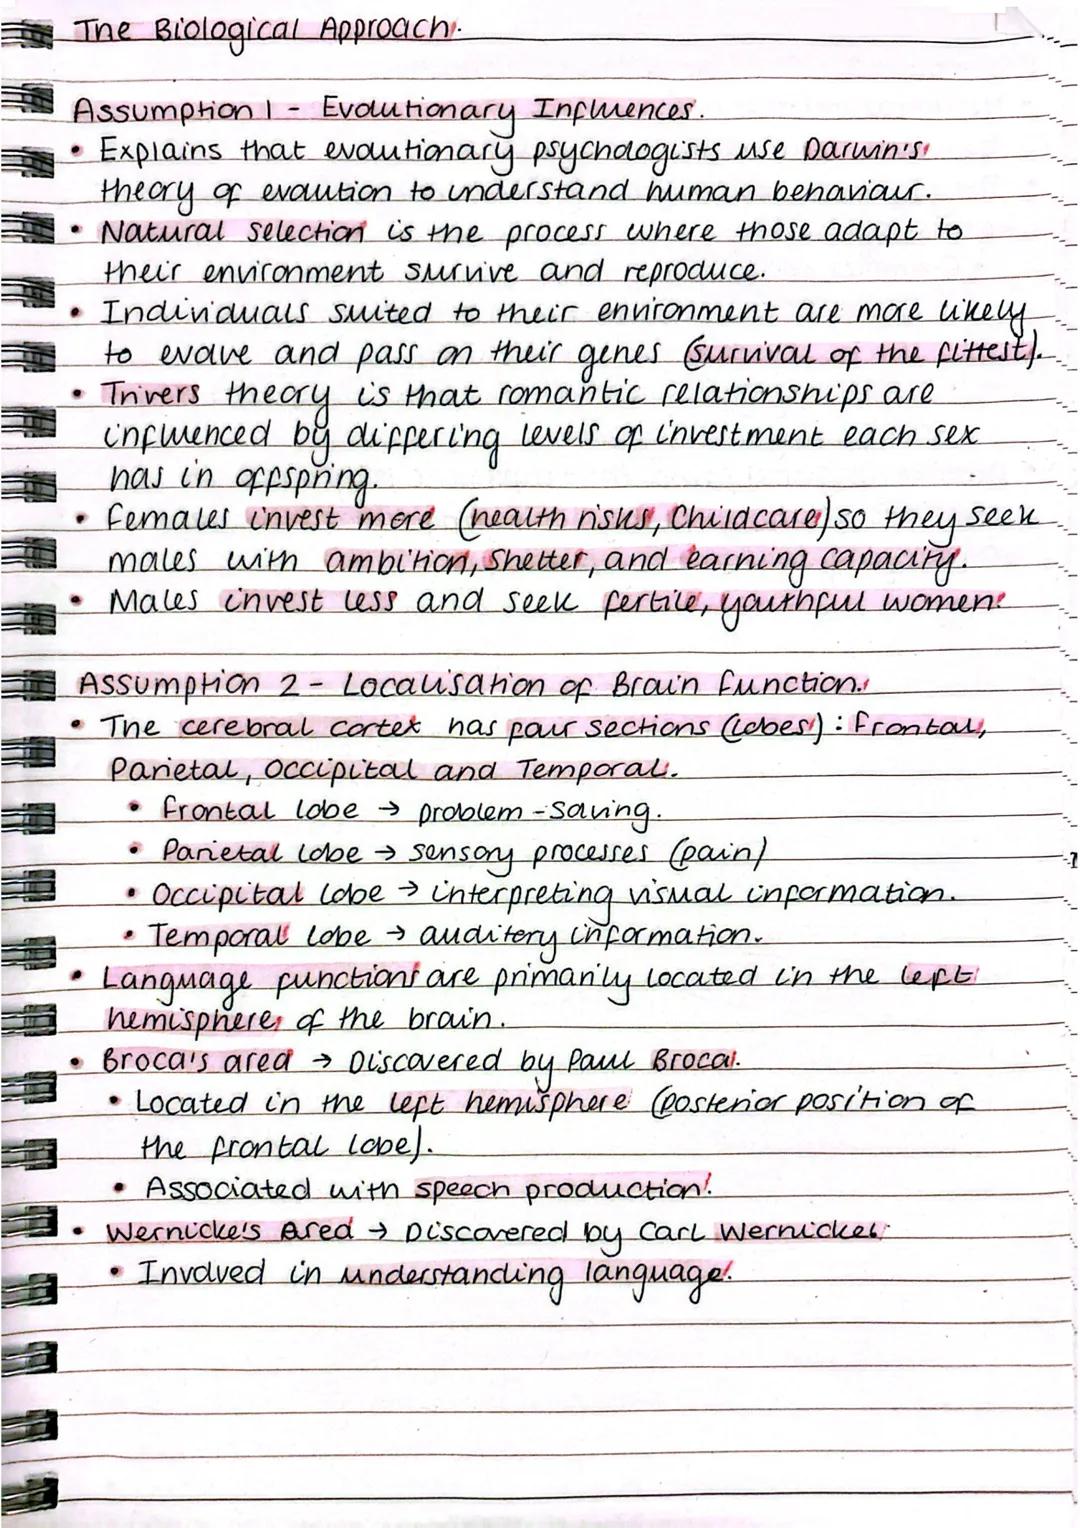 The Biological Approach.
Assumption 1 - Evolutionary Influences.
• Explains that evolutionary psychologists use Darwin's
theory of evolution to understand human behaviour.
• Natural selection is the process where those adapt to
their environment survive and reproduce.
• Individuals suited to their environment are more likely
to evolve and pass on their genes (survival of the fittest).
• Trivers theory is that romantic relationships are
influenced by differing levels of investment each sex
has in offspring.
• Females invest more (health risks, Childcare) so they seek
males with ambition, shelter, and earning capacity.
• Males invest less and seek fertile, youthful women.
Assumption 2 - Localisation of Brain Function.
• The cerebral cortex has four sections (lobes) : Frontal,
Parietal, Occipital and Temporal.
• Frontal lobe → problem-solving.
• Parietal lobe → sensory processes (pain)
• Occipital lobe → interpreting visual information.
• Temporal lobe → auditery information.
• Language functions are primarily located in the left
hemisphere, of the brain.
• Broca's area → Discovered by Paul Broca.
• Located in the left hemisphere (posterior position of
the frontal lobe).
• Associated with speech production.
• Wernicke's Area → Discovered by Carl Wernicke.
• Involved in understanding language.